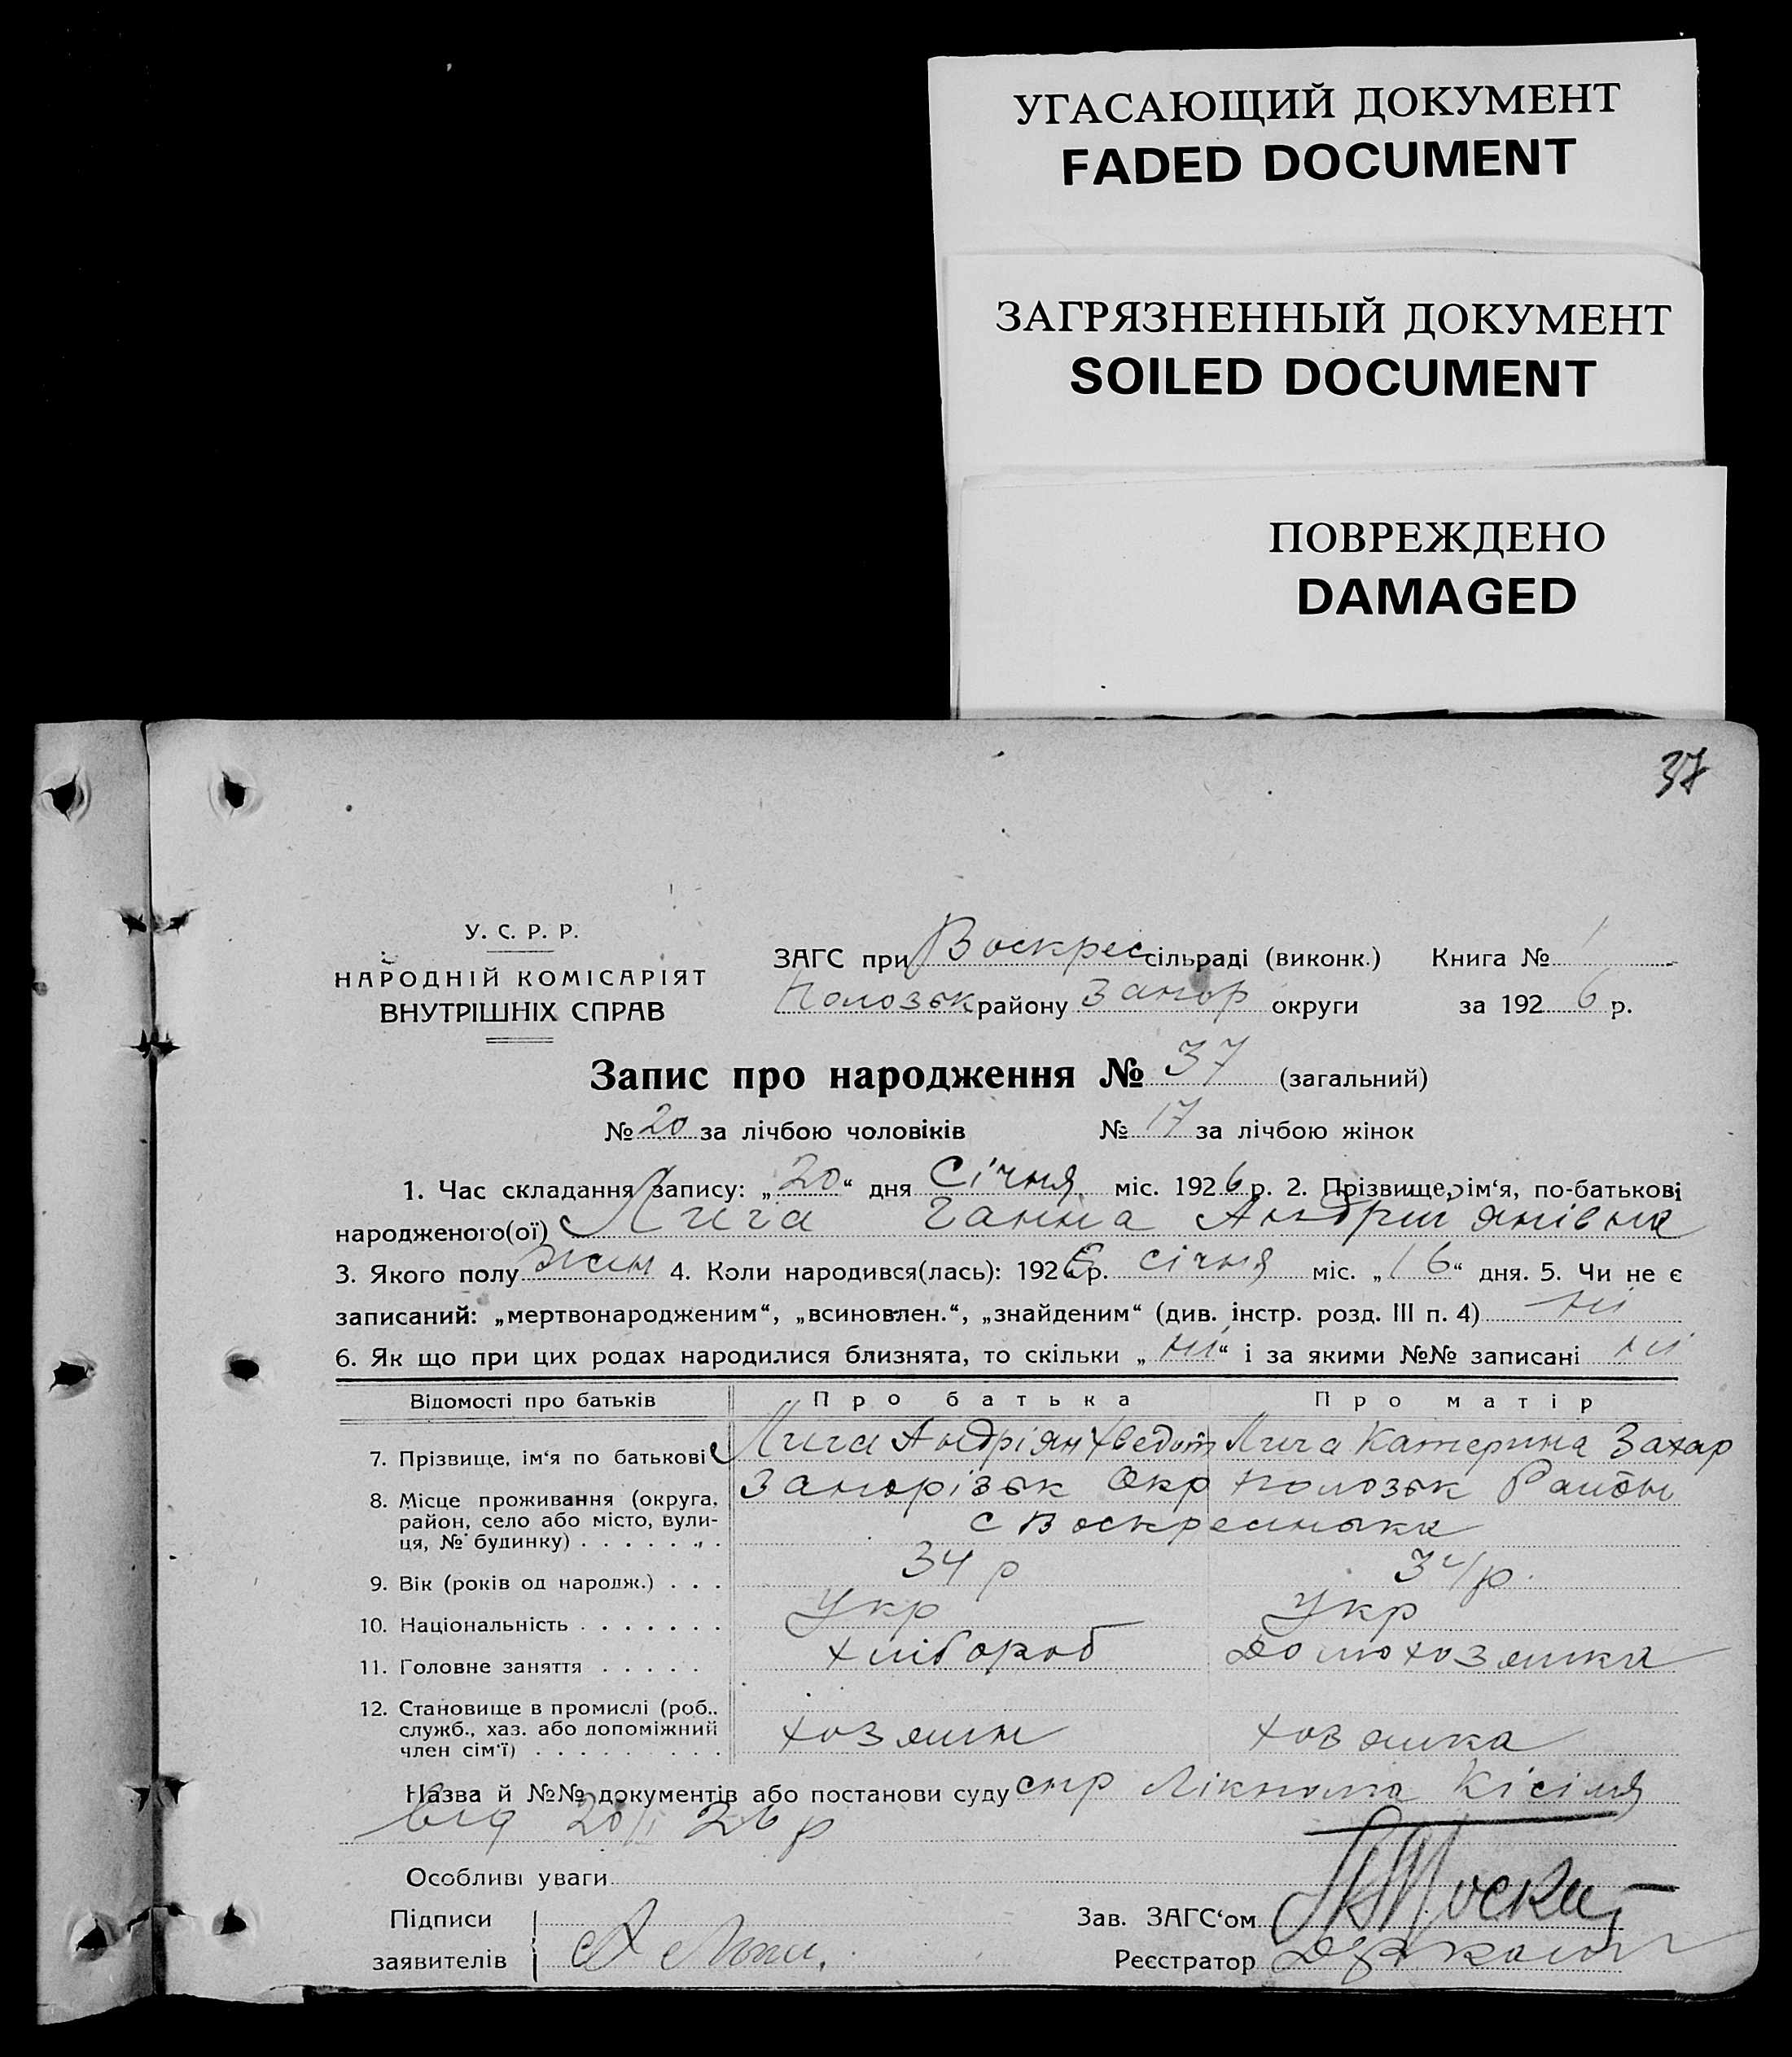 УГАСАЮЩИЙ ДОКУМЕНТ
FADED DOCUMENT
ЗАГРЯЗНЕННЫЙ ДОКУМЕНТ
SOILED DOCUMENT
ПОВРЕЖДЕНО
DAMAGED
37
У. С. Р. Р.
НАРОДНІЙ КОМІСАРІЯТ
ВНУТРІШНІХ СПРАВ
ЗАГС при Воскрес сільраді (виконк.) Книга № 1
Полозьк району Запор округи за 1926 р.
Запис про народження № 37 (загальний)
№ 20 за лічбою чоловіків № 17 за лічбою жінок
1. Час складання запису: „20“ дня Січня міс. 1926 р. 2. Прізвище, ім‘я, по-батькові
народженого(ої) Ганна
3. Якого полу жін 4. Коли народився(лась): 1926 р. січня міс. „16“ дня. 5. Чи не є
записаний: „мертвонародженим“, „всиновлен.“, „знайденим“ (див. інстр. розд. III п. 4) ні
6. Як що при цих родах народилися близнята, то скільки „ні“ і за якими №№ записані ні
Відомості про батьків Про батька Про матір
7. Прізвище, ім‘я по батькові Андріян Хведот Катерина Захар
8. Місце проживання (округа, район, село або місто, вулиця, № будинку) Запорізьк Окр Полозьк Район
с Воскресныка
9. Вік (років од народж.) 34 р 34 р.
10. Національність Укр Укр
11. Головне заняття хлібороб домохозяйка
12. Становище в промислі (роб., служб., хаз. або допоміжний член сім‘ї) хозяин хозяйка
Назва й №№ документів або постанови суду спр Кісіля
від 20/I 26 р
Особливі уваги
Підписи
заявителів
Зав. ЗАГС‘ом
Реєстратор